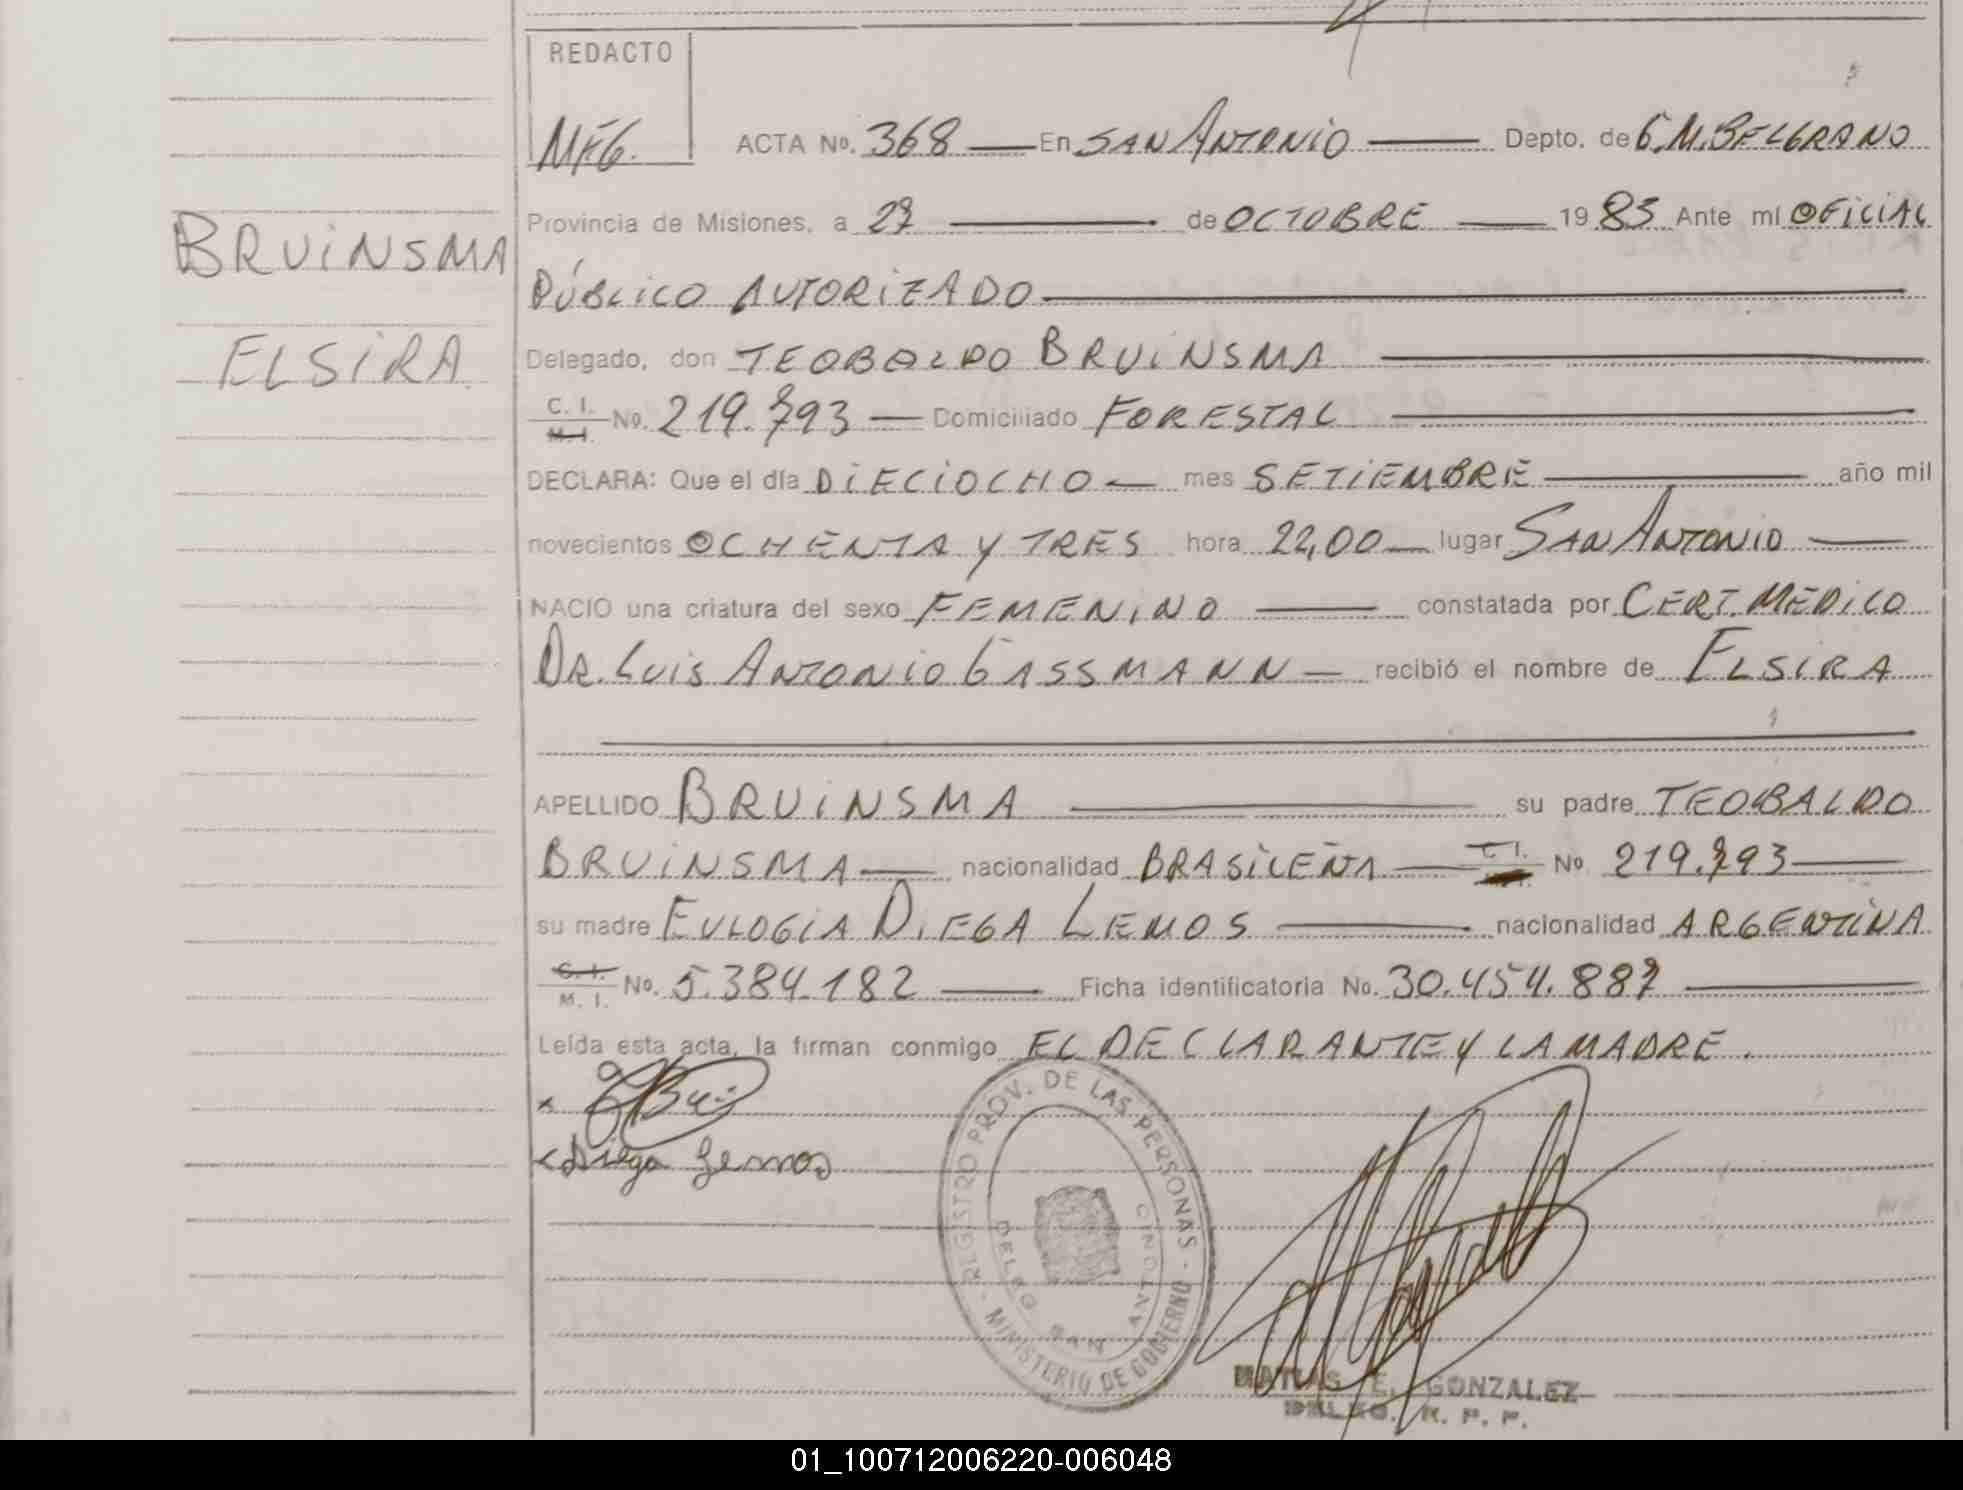 REDACTO
MEG.
ACTA No. 368 — En SAN ANTONIO — Depto. de G.M. BELGRANO
Provincia de Misiones, a 27 — de OCTUBRE — 1983 Ante mí OFICIAL
PÚBLICO AUTORIZADO —
Delegado, don TEOBALDO BRUINSMA —
C. I. M. I. No. 219.793 — Domiciliado FORESTAL —
DECLARA: Que el día DIECIOCHO — mes SETIEMBRE — año mil
novecientos OCHENTA Y TRES hora 22,00 — lugar SAN ANTONIO —
NACIO una criatura del sexo FEMENINO — constatada por CERT. MEDICO
DR. LUIS ANTONIO GASSMANN — recibió el nombre de ELSIRA
APELLIDO BRUINSMA — su padre TEOBALDO
BRUINSMA — nacionalidad BRASILEÑA — C. I. No. 219.793 —
su madre EULOGIA DIEGA LEMOS — nacionalidad ARGENTINA
C. I. M. I. No. 5.384.182 — Ficha identificatoria No. 30.454.887 —
Leída esta acta, la firman conmigo EL DECLARANTE Y LA MADRE.
Diega Lemos
BRUINSMA
ELSIRA
REGISTRO PROV. DE LAS PERSONAS - MINISTERIO DE GOBIERNO -
DELEG. SAN ANTONIO
MATIAS E. GONZALEZ
DELEG. R. P. P.
01_100712006220-006048